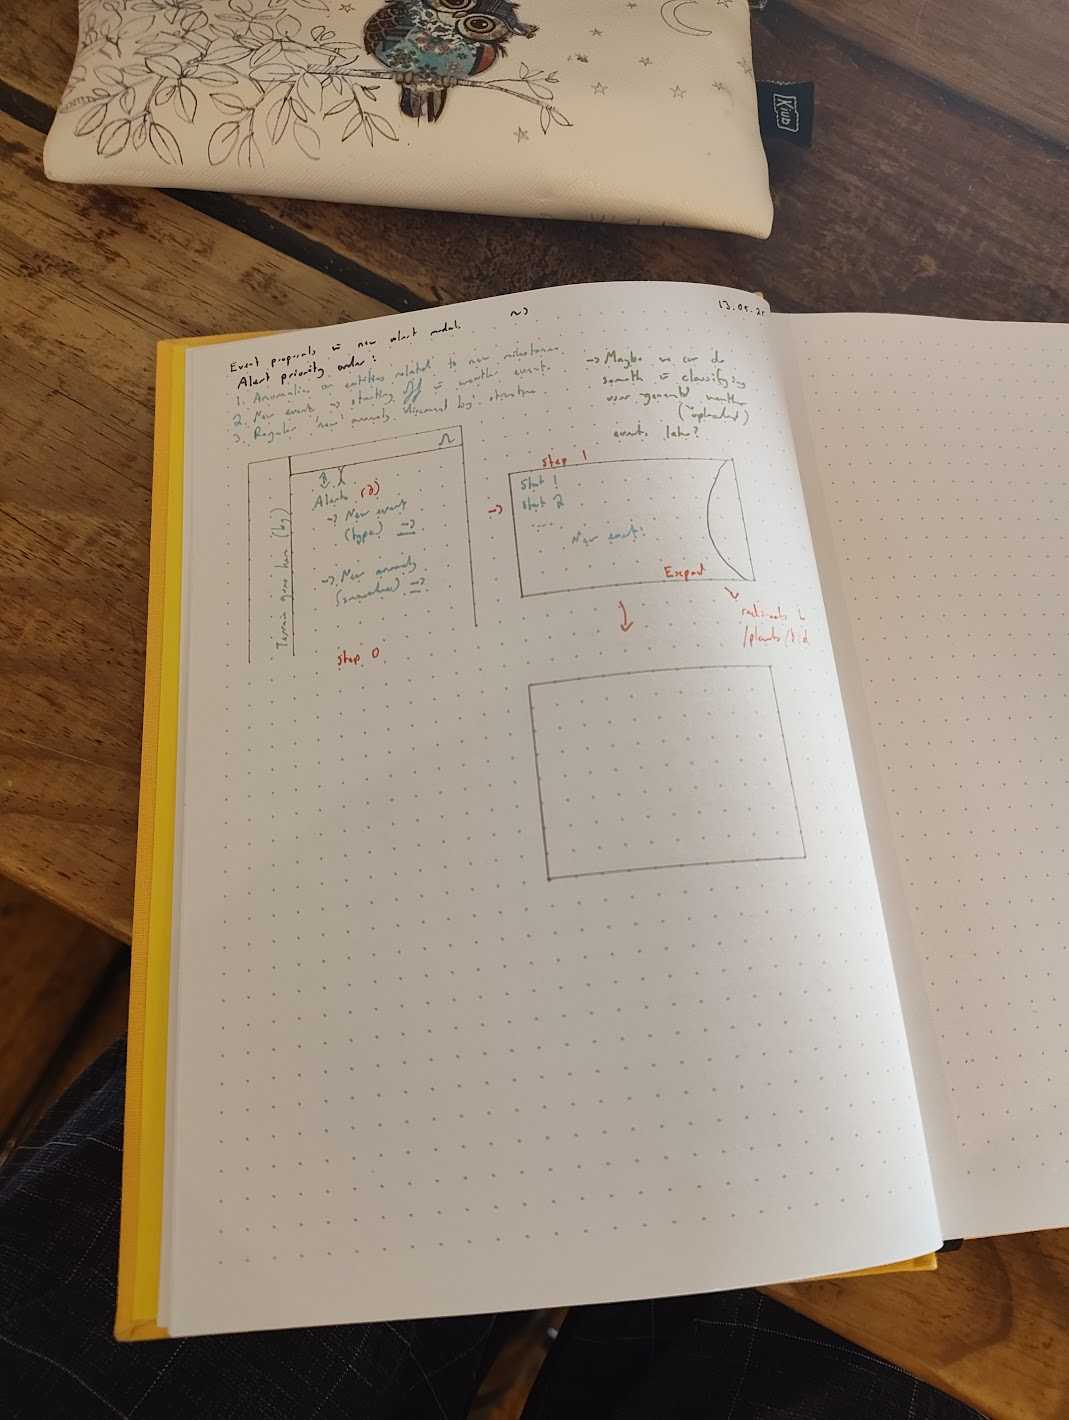 Kiub
13.05.25
Event proposals = new alert modal.
Alert priority order:
1. Anomalies on entities related to new milestones
2. New events → starting off = weather event.
3. Regular 'new' anomaly, discovered by structure
→ Maybe we can do
someth = classifying
user-generated weather
(uploaded)
events later?
Terrain goes here (bg)
Alerts (3)
→ New event
(type) →
→ New anomaly
(somewhere) →
Step 0
→
Step 1
Start 1
Start 2
....
New event!
Export
redirects to
/plants/:id